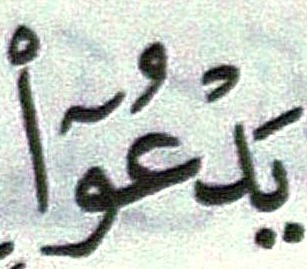 يَدْعُوٓا۟